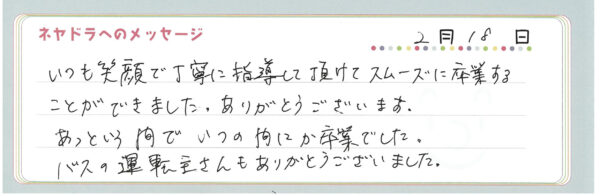 ネヤドラへのメッセージ
2月18日
いつも笑顔で丁寧に指導して頂けてスムーズに卒業する
ことができました。ありがとうございます。
あっという間で いつの間にか卒業でした。
バスの運転主さんもありがとうございました。